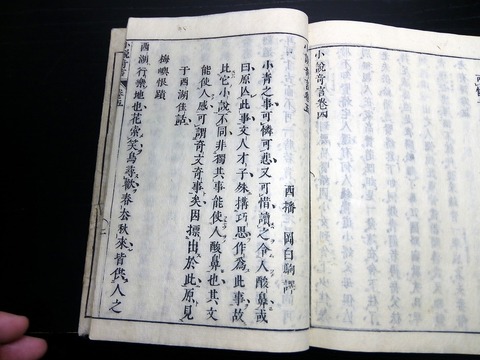 小說奇言卷四
小說奇言卷五
西播 岡白駒譯
小青之事可憐可悲又可惜讀之令人酸鼻或
曰原以此事文人才子殊搆巧思作爲此事故
比它小說不同非獨其事能使人酸鼻也其文
能使人感可謂奇文奇事矣因摽出於此原見
于西湖佳話
梅嶼恨蹟
西湖行樂地也花索笑鳥尋歡春去秋來皆供人之
小說奇言 卷五